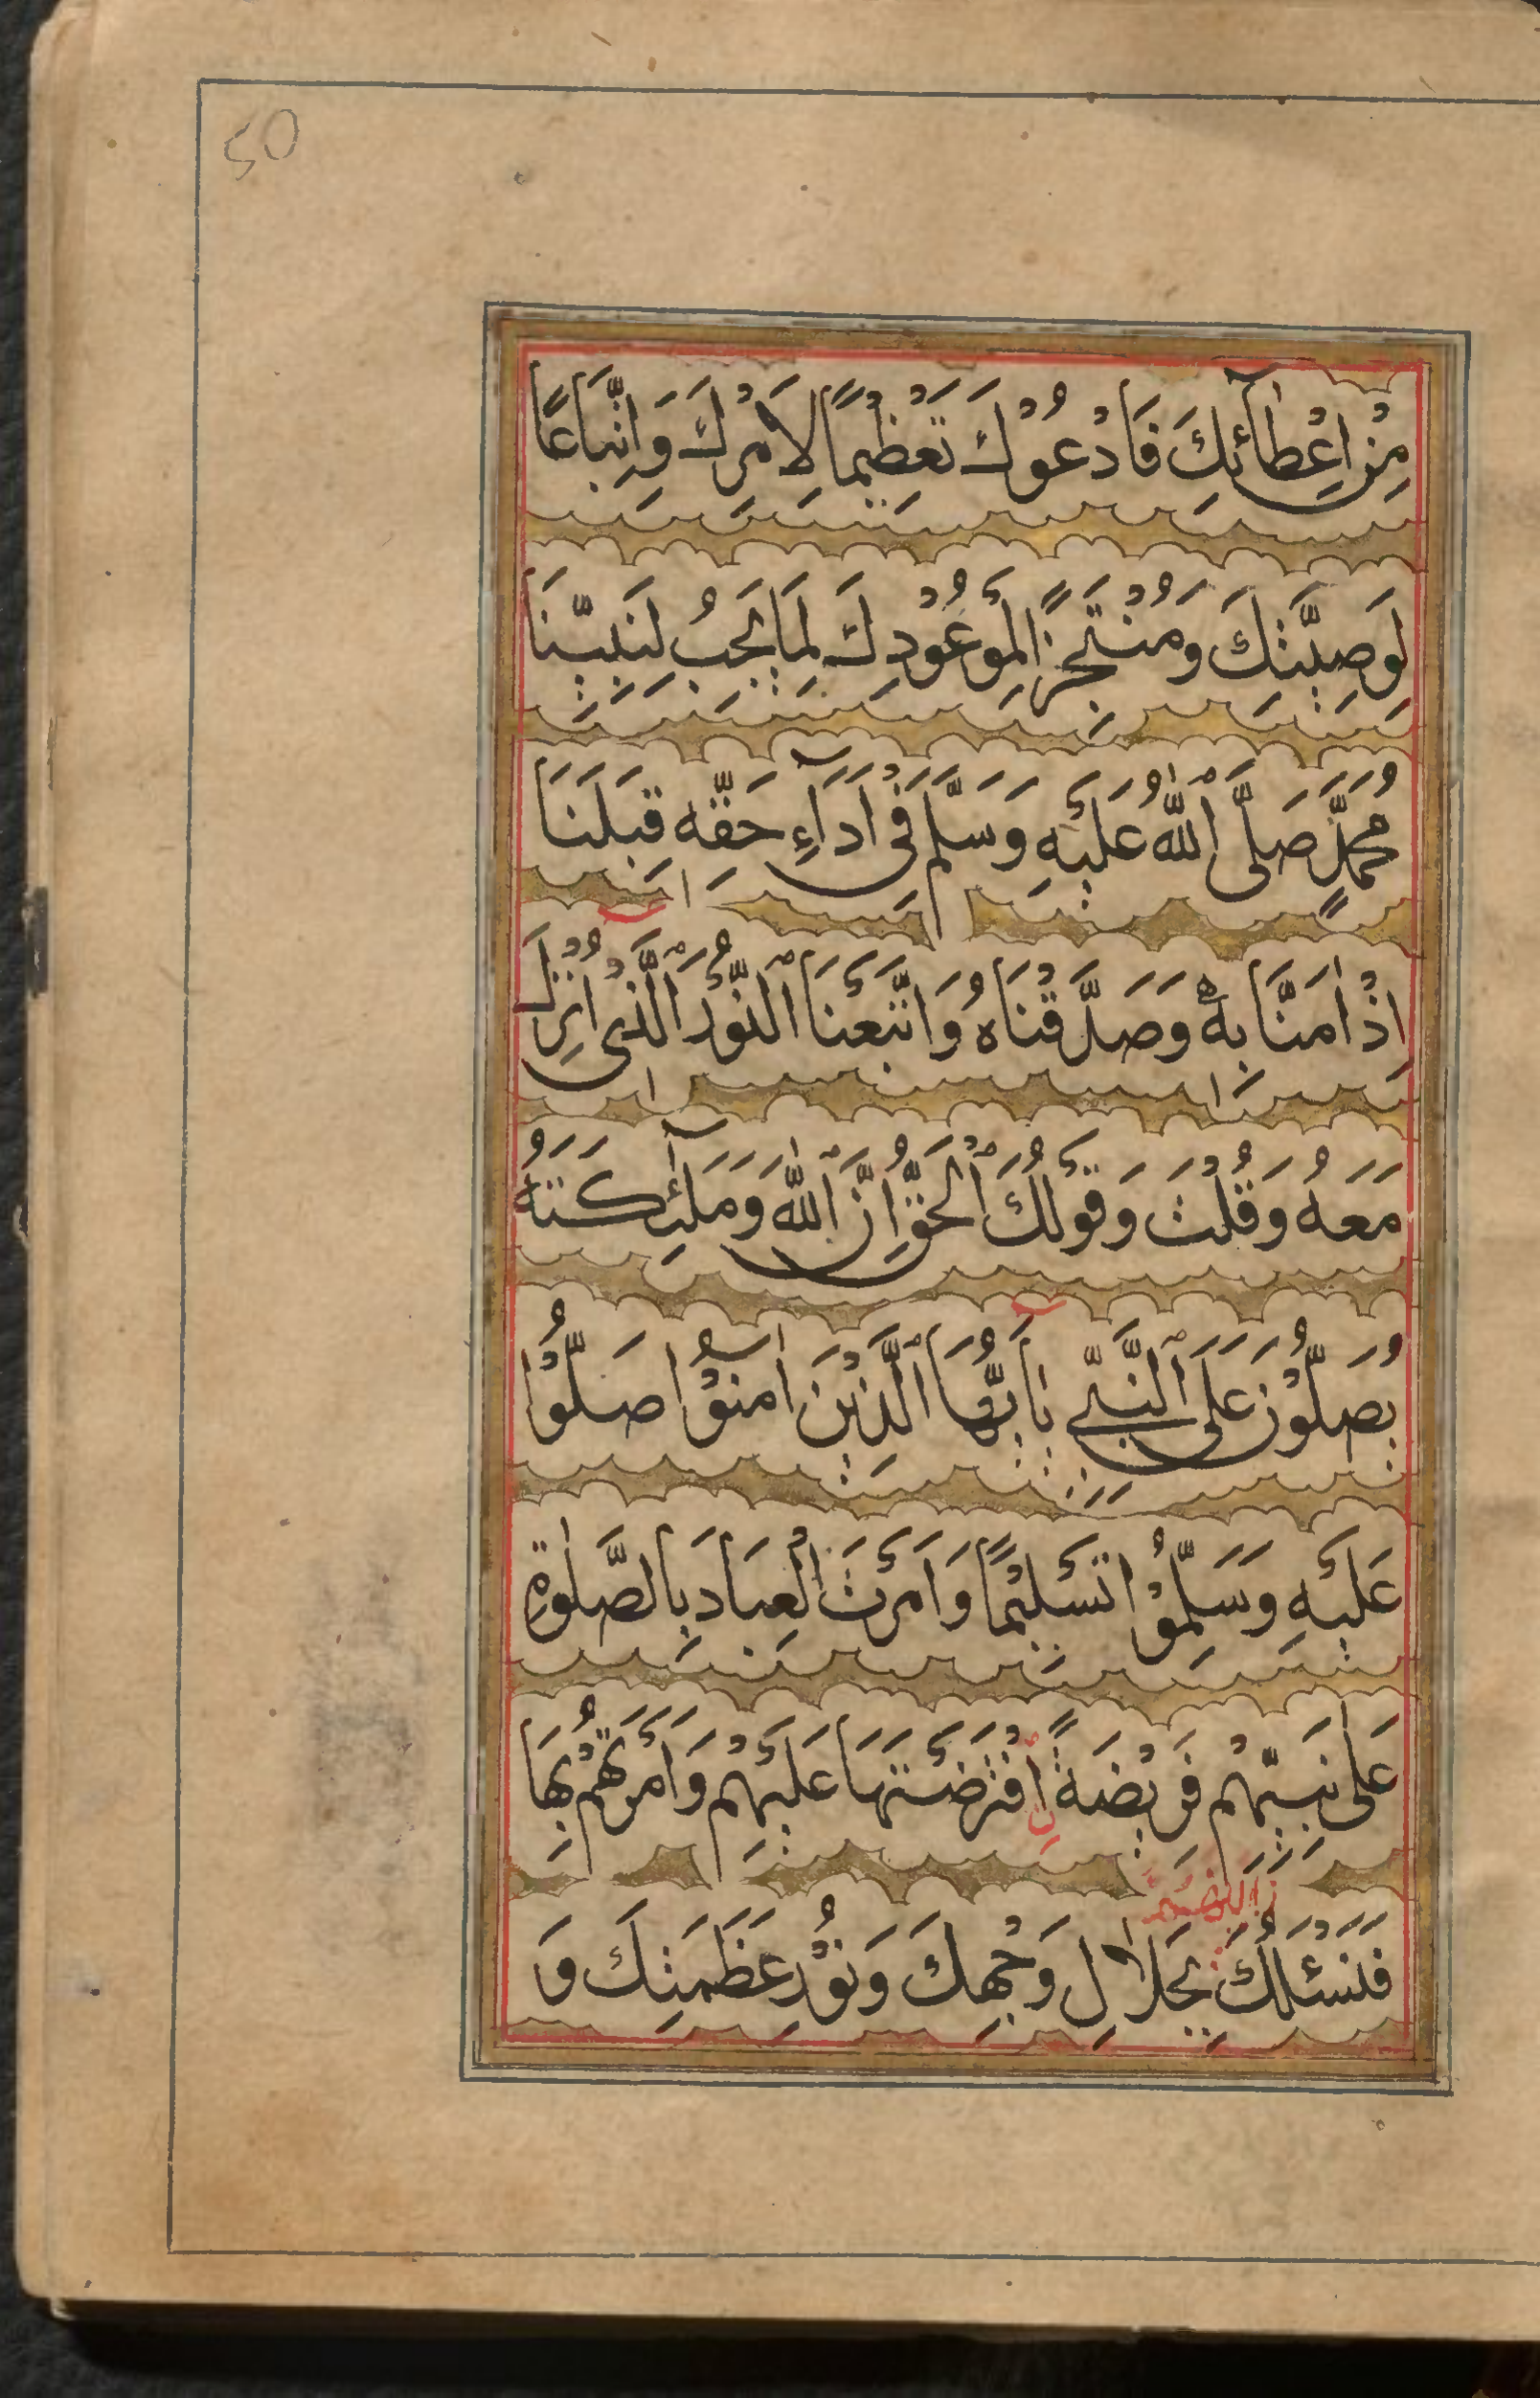 50
مِنْ اِعْطٰٓائِكَ فَادْعُوْكَ تَعْظِيْمًا لِاَمْرِكَ وَاِتِّبَاعًا
لِوَصِيَّتِكَ وَمُنْتَجِزًا لِمَوْعُوْدِكَ لِمَا يَجِبُ لِنَبِيِّنَا
مُحَمَّدٍ صَلَّى ٱللّٰهُ عَلَيْهِ وَسَلَّمَ فِىْ اَدَآءِ حَقِّهٖ قِبَلَنَا
اِذْ اٰمَنَّا بِهٖ وَصَدَّقْنَاهُ وَاتَّبَعْنَا ٱلنُّوْرَ ٱلَّذِىْٓ اُنْزِلَ
مَعَهُ وَقُلْتَ وَقَوْلُكَ ٱلْحَقُّ اِنَّ ٱللّٰهَ وَمَلٰٓئِكَتَهُ
يُصَلُّوْنَ عَلَى ٱلنَّبِيِّ يٰٓاَيُّهَا ٱلَّذِيْنَ اٰمَنُوْا صَلُّوْا
عَلَيْهِ وَسَلِّمُوْا تَسْلِيْمًا وَاَمَرْتَ الْعِبَادَ بِالصَّلٰوةِ
عَلٰى نَبِيِّهِمْ فَرِيْضَةً اِفْتَرَضْتَهَا عَلَيْهِمْ وَاَمَرْتَهُمْ بِهَا
فَنَسْئَلُكَ بِجَلَالِ وَجْهِكَ وَنُوْرِ عَظَمَتِكَ وَ